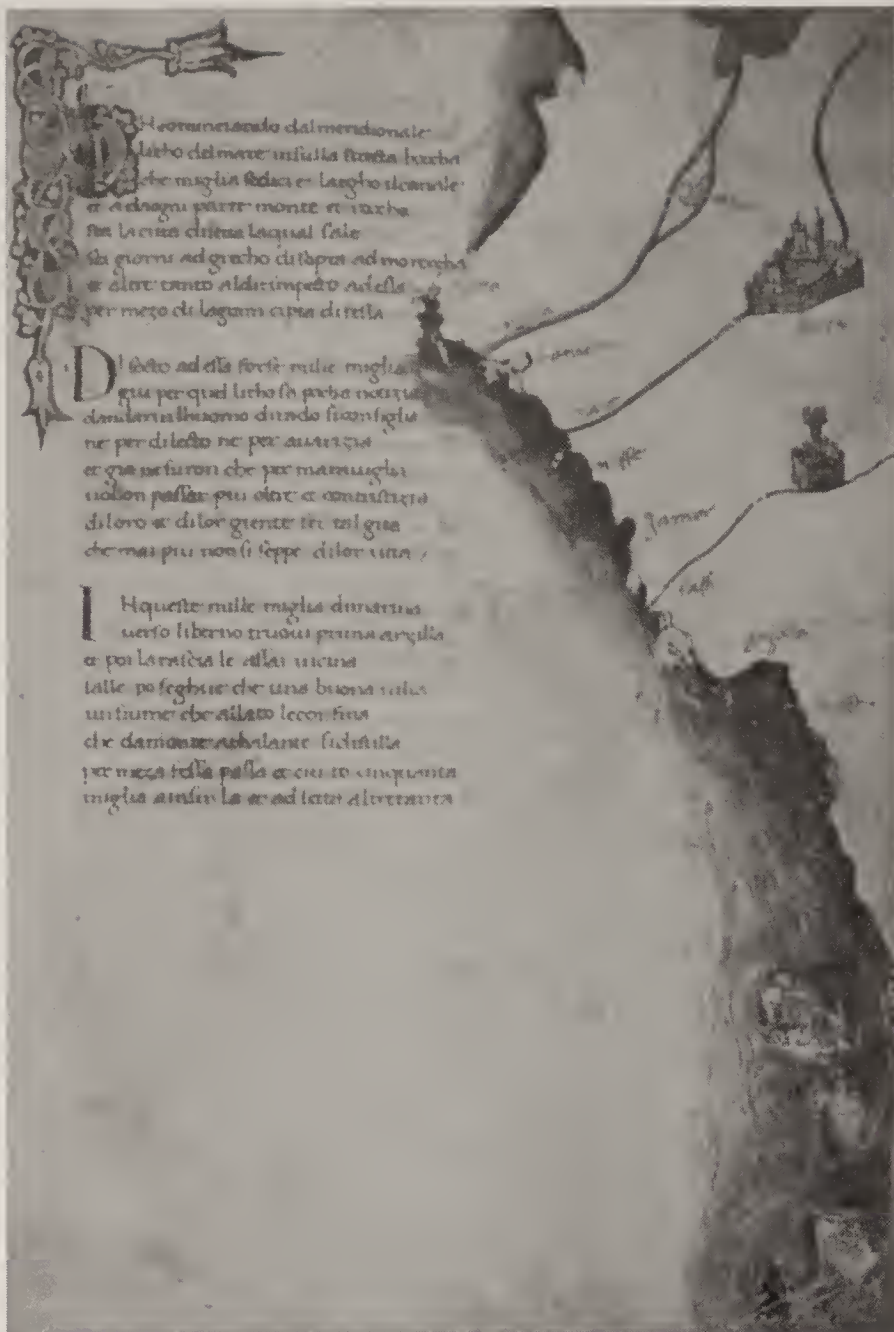 Ncominciando dalmeridionale
litho delmare insulla stretta boccha
che miglia sedici e largho ilcanale
et adogni parte monte et roccha
sta la citta disetta laqual sale
sei giorni ad grecho disopra ad moroccha
et altre tanto aldirimpetto adessa
per mezo di cipta difessa
Di sotto ad essa forse mille miglia
giu per quel litho sa pocha notitia
dandarui lhuomo dirado siconsiglia
ne per dilecto ne per auaritia
et gia nefuron che per marauiglia
uollon passar piu oltre et
diloro et dilor giente fu tal gita
che mai piu non si seppe dilor uita
INqueste mille miglia dimarina
uerso liberno truoui prima arzilla
et poi larascia le assai uicina
salle poseghue che una buona uilla
unfiume che allato lecon fina
che damonte athalante sidistilla
per meza fessa passa et ciento cinquanta
miglia ainsin la et ad setta altrettanta